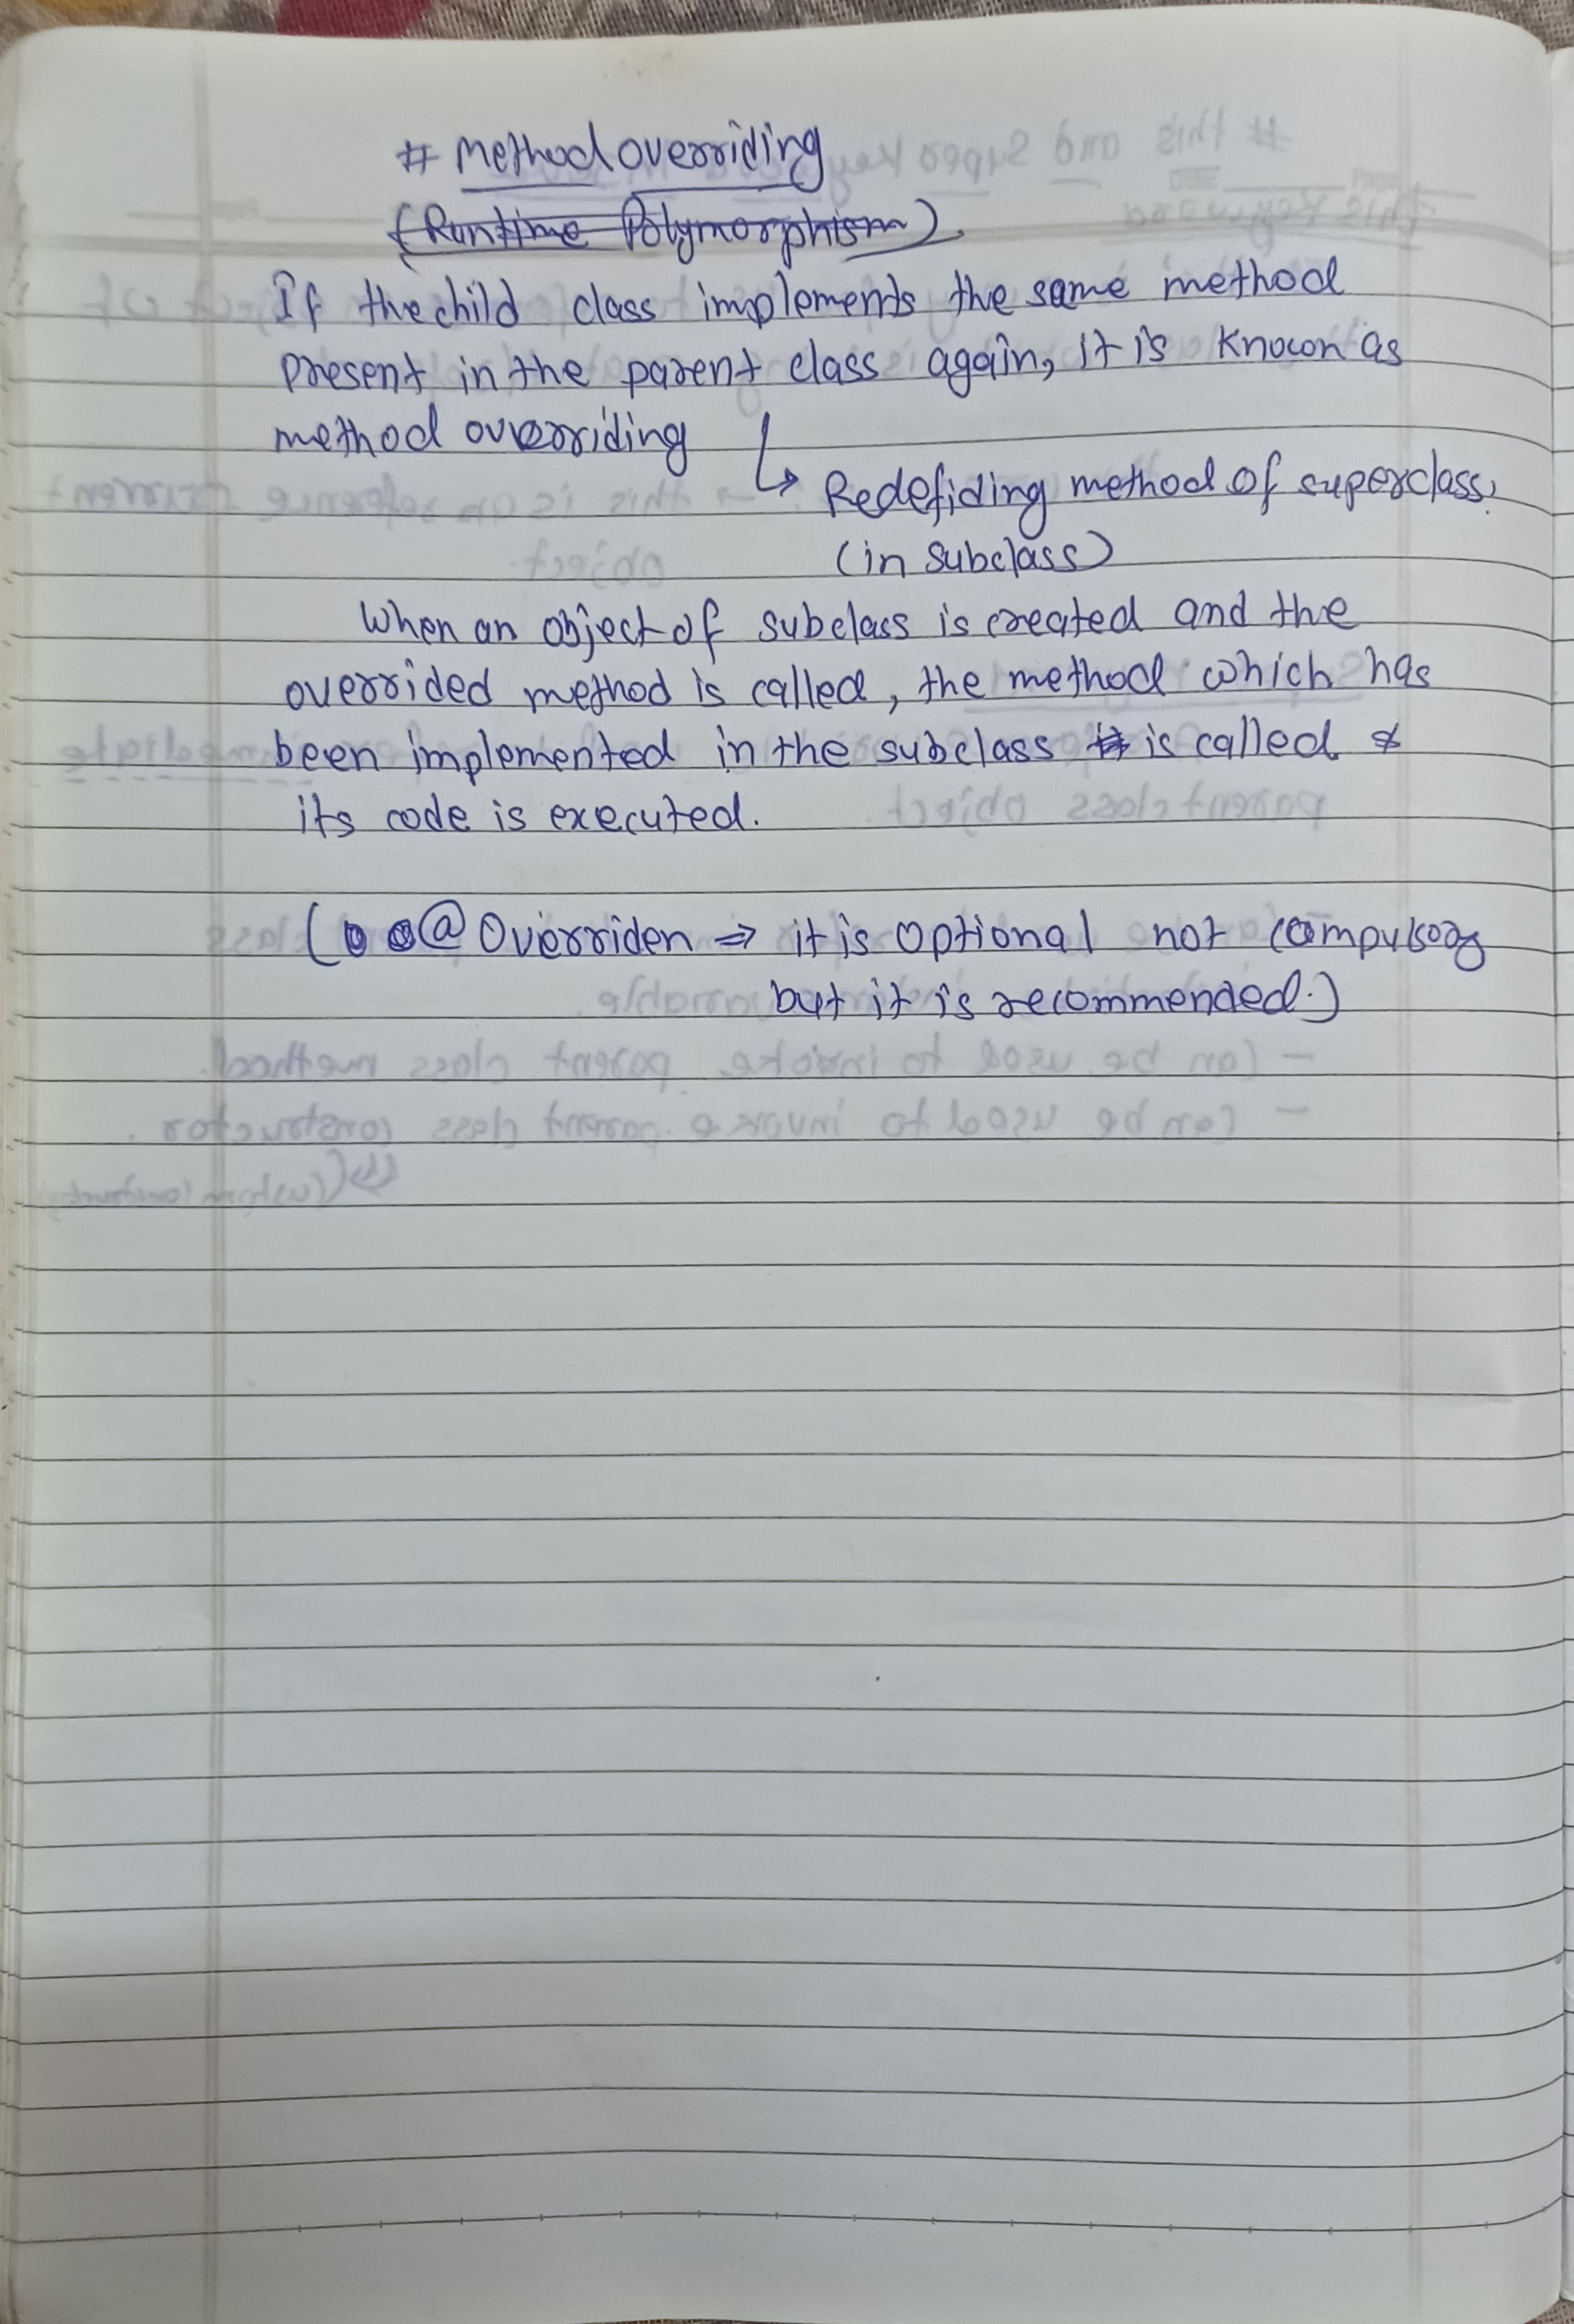 # Method overriding
(Runtime Polymorphism)
If the child class implements the same method
present in the parent class again, it is known as
method overriding
↳ Redefiding method of superclass.
(in subclass)
When an object of subclass is created and the
overrided method is called, the method which has
been implemented in the subclass is called &
its code is executed.
( @ Overriden ⇒ it is optional not compulsory
but it is recommended.)